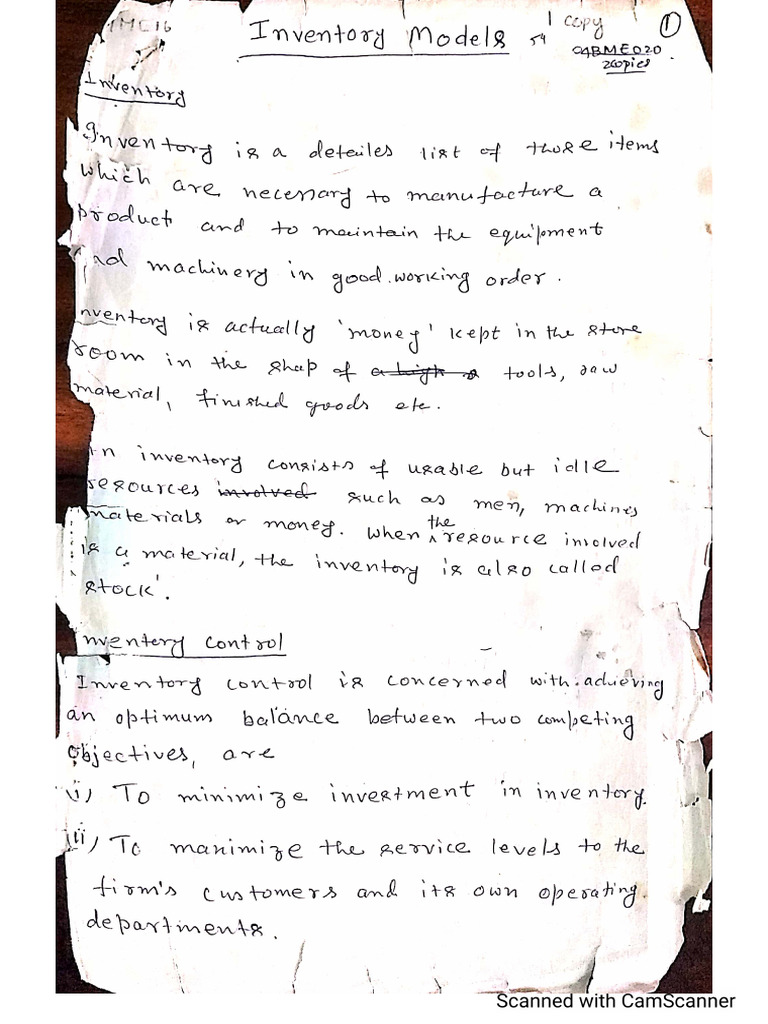 1MC16
Inventory Models
1 copy
①
04BME020
2copies
Inventory
Inventory is a detailes list of those items
which are necessary to manufacture a
product and to maintain the equipment
nd machinery in good working order.
nventory is actually 'money' kept in the store
room in the shap of a high a tools, raw
material, finished goods etc.
n inventory consists of usable but idle
resources involved such as men, machines
materials or money. When the resource involved
is a material, the inventory is also called
stock'.
nventory control
Inventory control is concerned with achieving
an optimum balance between two competing
objectives, are
i) To minimize investment in inventory.
ii) To maximize the service levels to the
firm's customers and its own operating
departments.
Scanned with CamScanner